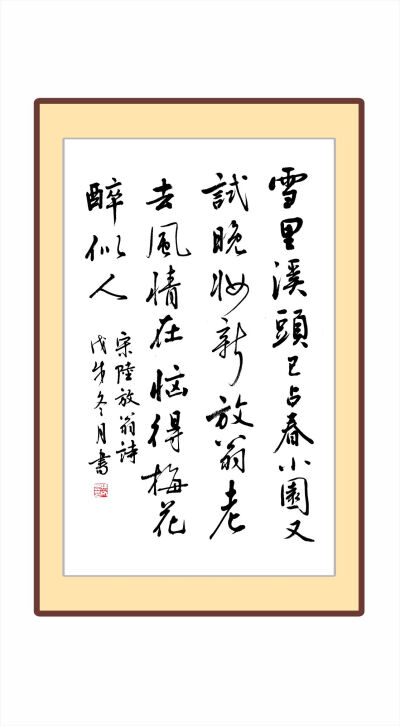 雪里溪頭已占春小園又
試晚妝新放翁老
去風情在恼得梅花
醉似人
宋陸放翁詩
戊戌冬月書